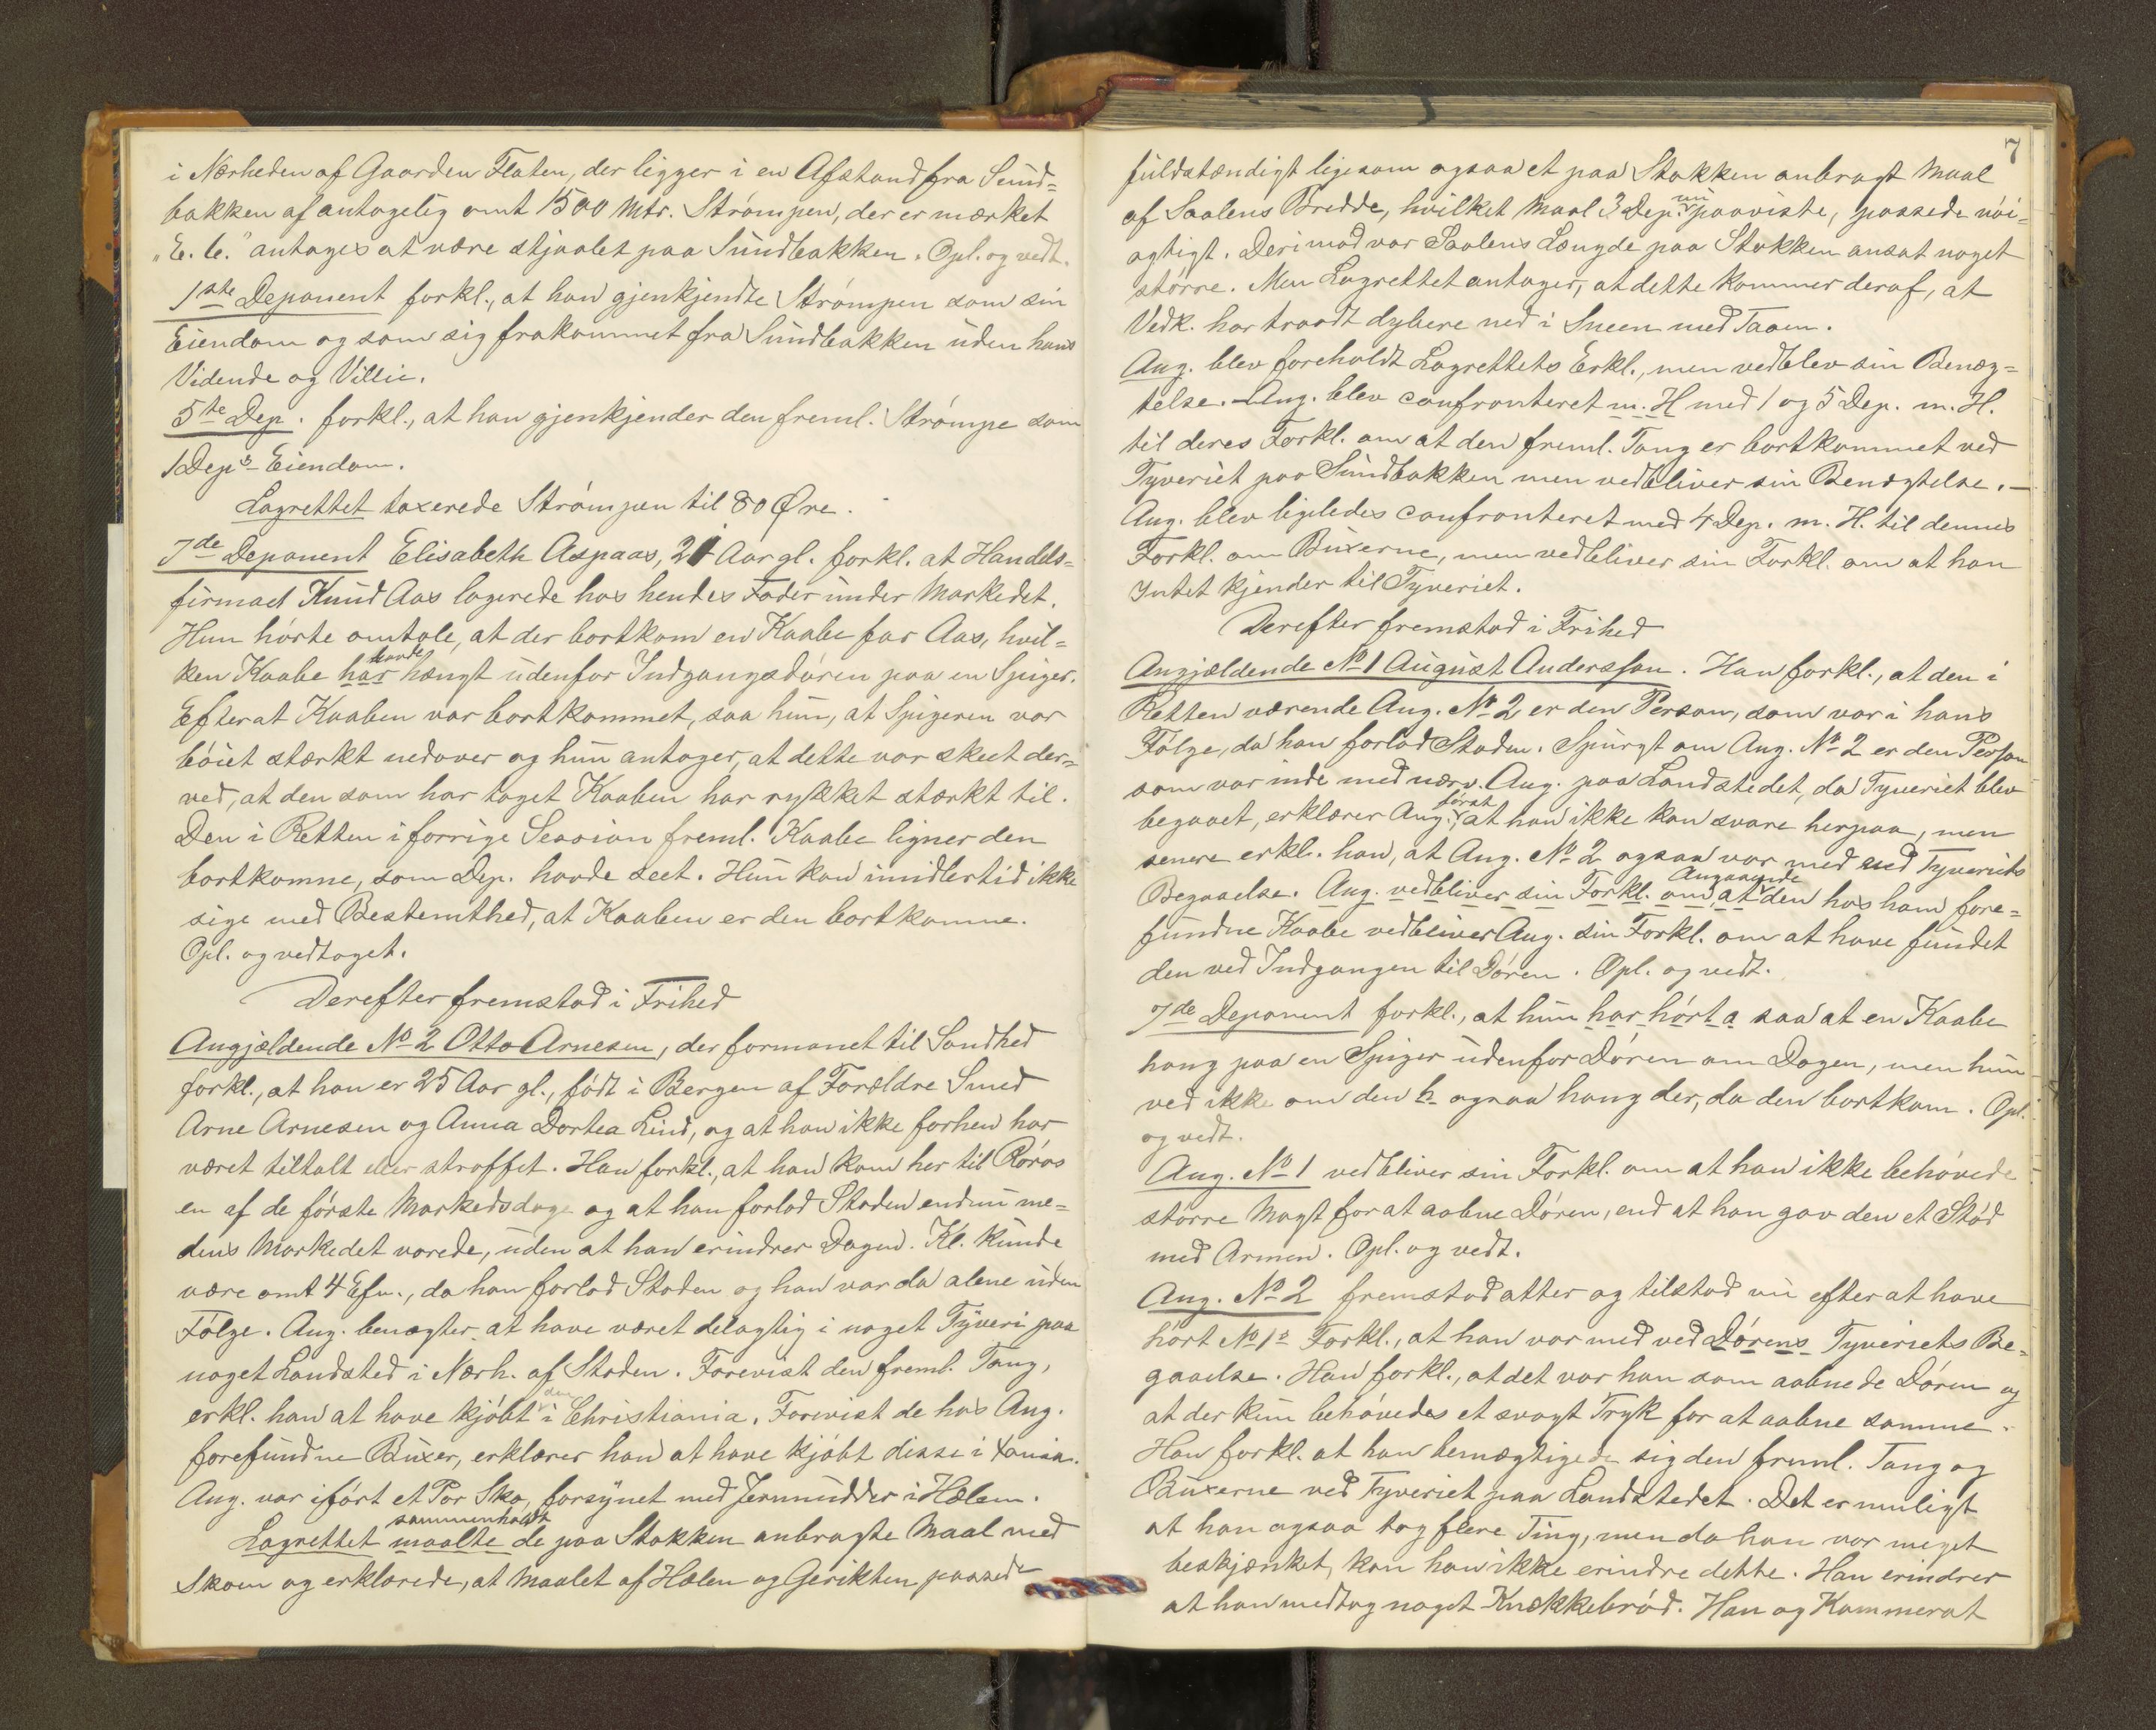 i Nærheden af Gaarden Flaten, der ligger i en Afstand fra Sund=
bakken af antagelig omt 1500 Mtr. Strømpen, der er mærket
"E. C." antages at være stjaalet paa Sundbakken. Opl. og vedt.
1ste Deponent forkl., at han gjenkjendte Strømpen som sin
Eiendom og som sig frakommet fra Sundbakken uden hans
Vidende og Villie.
5te Dep. forkl., at han gjenkjender den freml. Strømpe som
1 Dep's Eiendom.
Lagrettet taxerede Strømpen til 80 Øre.
7de Deponent Elisabeth Aspaas, 21 Aar gl. forkl. at Handels=
firmaet Knud Aas logerede hos hendes Fader under Markedet.
Hun hørte omtale, at der bortkom en Kaabe for Aas, hvil=
ken Kaabe har havde hængt udenfor Indgangsdøren paa en Spiger.
Efterat Kaaben var bortkommet, saa hun, at Spigeren var
bøiet stærkt nedover og hun antager, at dette var skeet der=
ved, at den som har taget Kaaben har rykket stærkt til.
Den i Retten i forrige Session freml. Kaabe ligner den
bortkomne, som Dep. havde seet. Hun kan imidlertid ikke
sige med Bestemthed, at Kaaben er den bortkomne.
Opl. og vedtaget.
Derefter fremstod i Frihed
Angjældende No 2 Otto Arnesen, der formanet til Sandhed
forkl., at han er 25 Aar gl., født i Bergen af Forældre Smed
Arne Arnesen og Anna Dortea Lind, og at han ikke forhen har
været tiltalt eller straffet. Han forkl., at han kom her til Røros
en af de første Markedsdage og at han forlod Staden endnu me=
dens Markedet varede, uden at han erindrer Dagen. Kl. kunde
være omt 4 Efm., da han forlod Staden og han var da alene uden
Følge. Ang. benægter at have været delagtig i noget Tyveri paa
noget Landsted i Nærh. af Staden. Forevist den freml. Tang,
erkl. han at have kjøbt den i Christiania. Forevist de hos Ang.
forefundne Buxer, erklærer han at have kjøbt disse i Xania.
Ang. var iført et Par Sko, forsynet med Jernmudder i Hælen.
Lagrettet maalte sammenholdt de paa Stokken anbragte Maal med
Skoen og erklærede, at Maalet af Hælen og Gerikten passede
7
fuldstændigt ligesom ogsaa et paa Stokken anbragt Maal
af Saalens Bredde, hvilket Maal 3 Dep. nu paaviste, passede nøi=
agtigt. Derimod var Saalens Længde paa Stokken ansat noget
større. Men Lagrettet antager, at dette kommer deraf, at
Vedk. har traadt dybere ned i Sneen med Taaen.
Ang. blev foreholdt Lagrettets Erkl., men vedblev sin Benæg=
telse. – Ang. blev confronteret m. H med 1 og 5 Dep. m. H.
til deres Forkl. om at den freml. Tang er bortkommet ved
Tyveriet paa Sundbakken men vedbliver sin Benægtelse. –
Ang. blev ligeledes confronteret med 4 Dep. m. H. til dennes
Forkl. om Buxerne, men vedbliver sin Forkl. om at han
Intet kjender til Tyveriet.
Derefter fremstod i Frihed
Angjældende No 1 August Andersson. Han forkl., at den i
Retten værende Ang. No 2 er den Person, som var i hans
Følge, da han forlod Staden. Spurgt om Ang. No 2 er den Person
som var inde med nærv. Ang. paa Landstedet, da Tyveriet blev
begaaet, erklærer Ang. først, at han ikke kan svare herpaa, men
senere erkl. han, at Ang. No 2 ogsaa var med ved Tyveriets
Begaaelse. Ang. vedbliver sin Forkl. om at Angaaende den hos ham fore=
fundne Kaabe vedbliver Ang. sin Forkl. om at have fundet
den ved Indgangen til Døren. Opl. og vedt.
7de Deponent forkl., at hun har hørt a saa at en Kaabe
hang paa en Spiger udenfor Døren om Dagen, men hun
ved ikke om den h ogsaa hang der, da den bortkom. Opl.
og vedt.
Ang. No 1 vedbliver sin Forkl. om at han ikke behøvede
større Magt for at aabne Døren, end at han gav den et Stød
med Armen. Opl. og vedt.
Ang. No 2 fremstod atter og tilstod nu efter at have
hørt No 1s Forkl., at han var med ved Dørens Tyveriets Be=
gaaelse. Han forkl., at det var han som aabnede Døren og
at der kun behøvedes et svagt Tryk for at aabne samme.
Han forkl. at han bemægtigede sig den freml. Tang og
Buxerne ved Tyveriet paa Landstedet. Det er muligt
at han ogsaa tog flere Ting, men da han var meget
beskjænket, kan han ikke erindre dette. Han erindrer
at han medtog noget Knækkebrød. Han og Kammerat